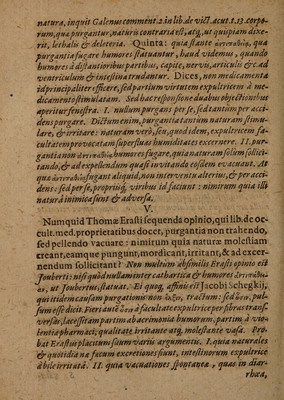 natura, inquit Galenus comment. 2. in lib. de vict. acut. t. 13. corpo-
rum, quæ purgantur, naturis contraria est, atq; ut quispiam dixe-
rit, lethalis & deleteria. Quinta: quia stante qua
purgantia fugare humores statuantur, haud videmus, quando
humores à distantioribus partibus, capite, nervis, articulis &c. ad
ventriculum & intestina trudantur. Dices, non medicamenta
id principaliter efficere, sed partium virtutem expultricem à me-
dicamento stimulatam. Sed hac responsione duabus objectionibus
aperitur fenestra. I. nullum purgans per se, sed tantùm per acci-
dens purgare. Dictum enim, purgantia tantùm naturam stimu-
lare, & irritare: naturam verò, seu, quod idem, expultricem fa-
cultatem provocatam superfluas humiditates excernere. II. pur-
gantia non humores fugare, quia naturam solùm sollici-
tando, & ad expellendum quasi invitando eosdem evacuant. At
quæ fugant aliquid, non interventu alterius, & per acci-
dens: sed per se, propriáq; viribus id faciunt: nimirum quia illi
natura inimica sunt & adversa.
V.
Numquid Thomæ Erasti sequenda opinio, qui lib. de oc-
cult. med. proprietatibus docet, purgantia non trahendo,
sed pellendo vacuare: nimirum quia naturæ molestiam
creant, eamque pungunt, mordicant, irritant, & ad excer-
nendum sollicitant? Non multùm absimilis Erasti opinio est
Jouberti: nisi quòd nullam inter cathartica & humores
ut Joubertus, statuat. Ei quoq; affinis est Jacobi Schegkij,
qui itidem causam purgationis non tractum: sed pul-
sum esse dicit. Fieri ante à facultate expultrice per fibras transf-
versas, lacessitam partim ab acrimonia humorum, partim à vio-
lentia pharmaci, qualitate irritante atq; molestante vasa. Pro-
bat Erastus placitum suum variis argumentis. I. quia naturales
& quotidianæ fæcum excretiones fiunt, intestinorum expultrice
à bile irritata. II. quia vacuationes spontaneæ, quas in diar-
rhœa,